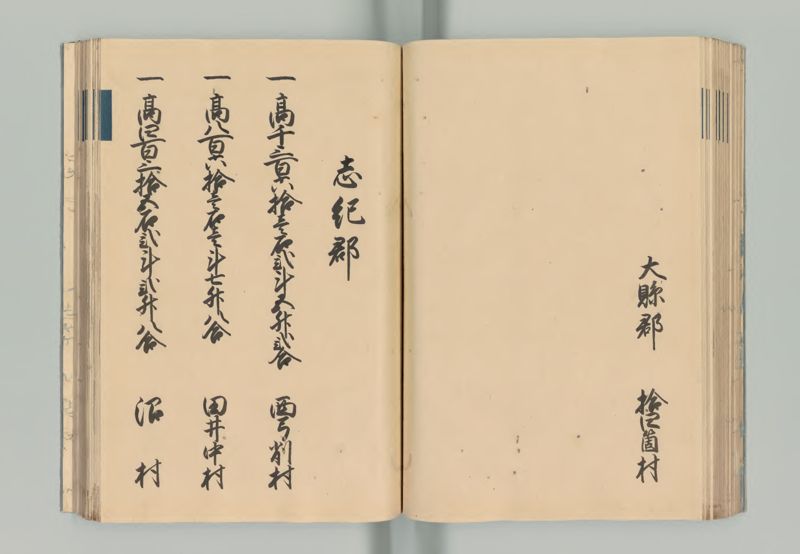 大縣郡 拾四箇村
志紀郡
一高千三百六拾壱石弐斗五升弐合 西弓削村
一高八百六拾壱石壱斗七升八合 田井中村
一高四百三拾五石弐斗弐升八合 沼村